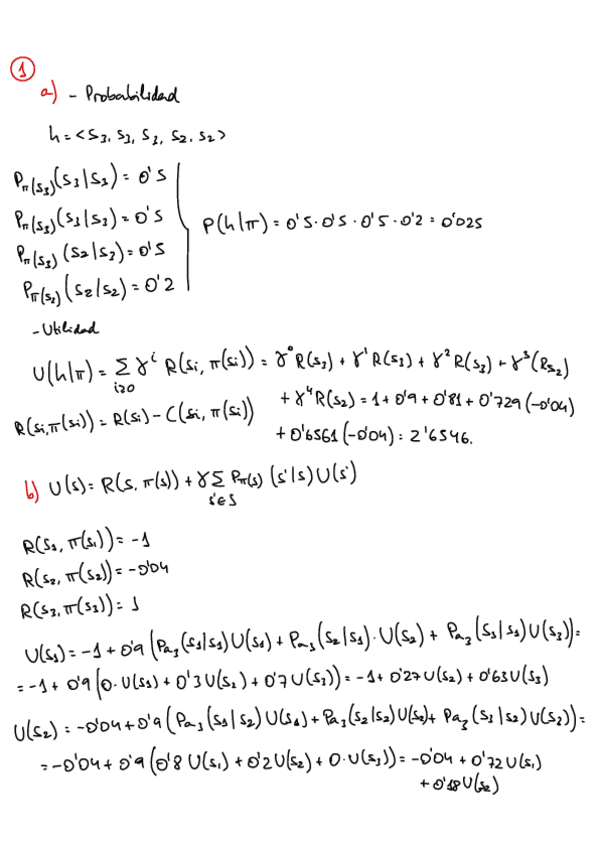 1
a) - Probabilidad
h = <S3, S3, S3, S2, S2>
Pπ(S3)(S3|S3) = 0'5
Pπ(S3)(S3|S3) = 0'5
Pπ(S3)(S2|S3) = 0'5
Pπ(S2)(S2|S2) = 0'2
P(h|π) = 0'5 · 0'5 · 0'5 · 0'2 = 0'025
- Utilidad
U(h|π) = Σ i≥0 γ^i R(Si, π(Si)) = γ^0 R(S3) + γ^1 R(S3) + γ^2 R(S3) + γ^3 (RS2)
+ γ^4 R(S2) = 1 + 0'9 + 0'81 + 0'729 (-0'04)
R(Si, π(Si)) = R(Si) - C(Si, π(Si))
+ 0'6561 (-0'04) = 2'6546.
b) U(s) = R(s, π(s)) + γ Σ s'∈S Pπ(s) (s'|s) U(s')
R(S1, π(S1)) = -1
R(S2, π(S2)) = -0'04
R(S3, π(S3)) = 1
U(S1) = -1 + 0'9 (Pa3(S1|S1) U(S1) + Pa3(S2|S1) · U(S2) + Pa3(S3|S1) U(S3)) =
= -1 + 0'9 (0 · U(S1) + 0'3 U(S2) + 0'7 U(S3)) = -1 + 0'27 U(S2) + 0'63 U(S3)
U(S2) = -0'04 + 0'9 (Pa3(S1|S2) U(S1) + Pa3(S2|S2) U(S2) + Pa3(S3|S2) U(S3)) =
= -0'04 + 0'9 (0'8 U(S1) + 0'2 U(S2) + 0 · U(S3)) = -0'04 + 0'72 U(S1)
+ 0'18 U(S2)